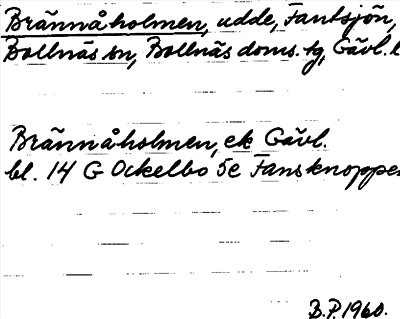 Brännåholmen, udde, Fantsjön,
Bollnäs sn, Bollnäs doms. tg, Gävl. l
Brännåholmen, ek Gävl.
bl. 14 G Ockelbo 5e Fansknoppen
B.P. 1960.